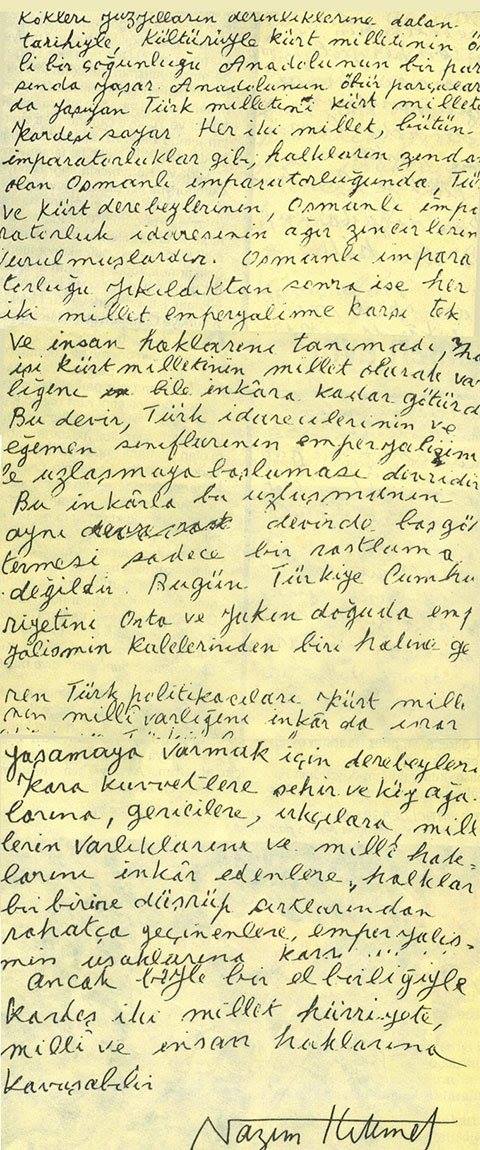 kökleri yüzyılların derinliklerine dalan
tarihiyle, kültürüyle kürt milletinin ö
li bir çoğunluğu Anadolunun bir par
sında yaşar. Anadolunun öbür parçalar
da yaşıyan Türk milletini kürt millet
kardeşi sayar Her iki millet, bütün
imparatorluklar gibi, halkların zında
olan Osmanlı imparatorluğunda, Tür
ve kürt derebeylerinin, Osmanlı impa
ratorluk idaresinin ağır zincirlerin
vurulmuşlardır. Osmanlı impara
torluğu yıkıldıktan sonra ise her
iki millet emperyalizme karşı tek
ve insan haklarını tanımadı,
işi kürt milletinin millet olarak var
lığını bile inkâra kadar götürd
Bu devir, Türk idarecilerinin ve
eğemen sınıflarının emperyalizim
le uzlaşmaya başlaması devridir
Bu inkârla bu uzlaşmanın
aynı devirde başgös
termesi sadece bir rastlama
değildir. Bugün Türkiye Cumhu
riyetini Orta ve Yakın doğuda emp
yalismin kalelerinden biri haline ge
ren Türk politikacıları kürt mille
nin millî varlığını inkârda ısrar
yaşamaya varmak için derebeyleri
kara kuvvetlere şehir ve köy ağa
larına, gericilere, ırkçılara, mill
lerin varlıklarını ve millî hak-
larını inkâr edenlere, halklar
bir birine düşrüp sırtlarından
rahatça geçinenlere, emperyalis-
min uşaklarına karşı
Ancak böyle bir elbirliğiyle
kardeş iki millet hürriyete,
millî ve insan haklarına
kavuşabilir
Nazım Hikmet